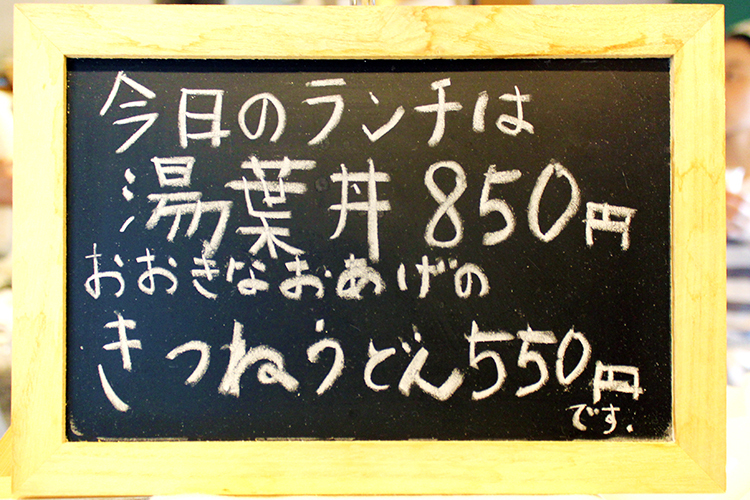 今日のランチは
湯葉丼 850円
おおきなおあげの
きつねうどん550円
です.